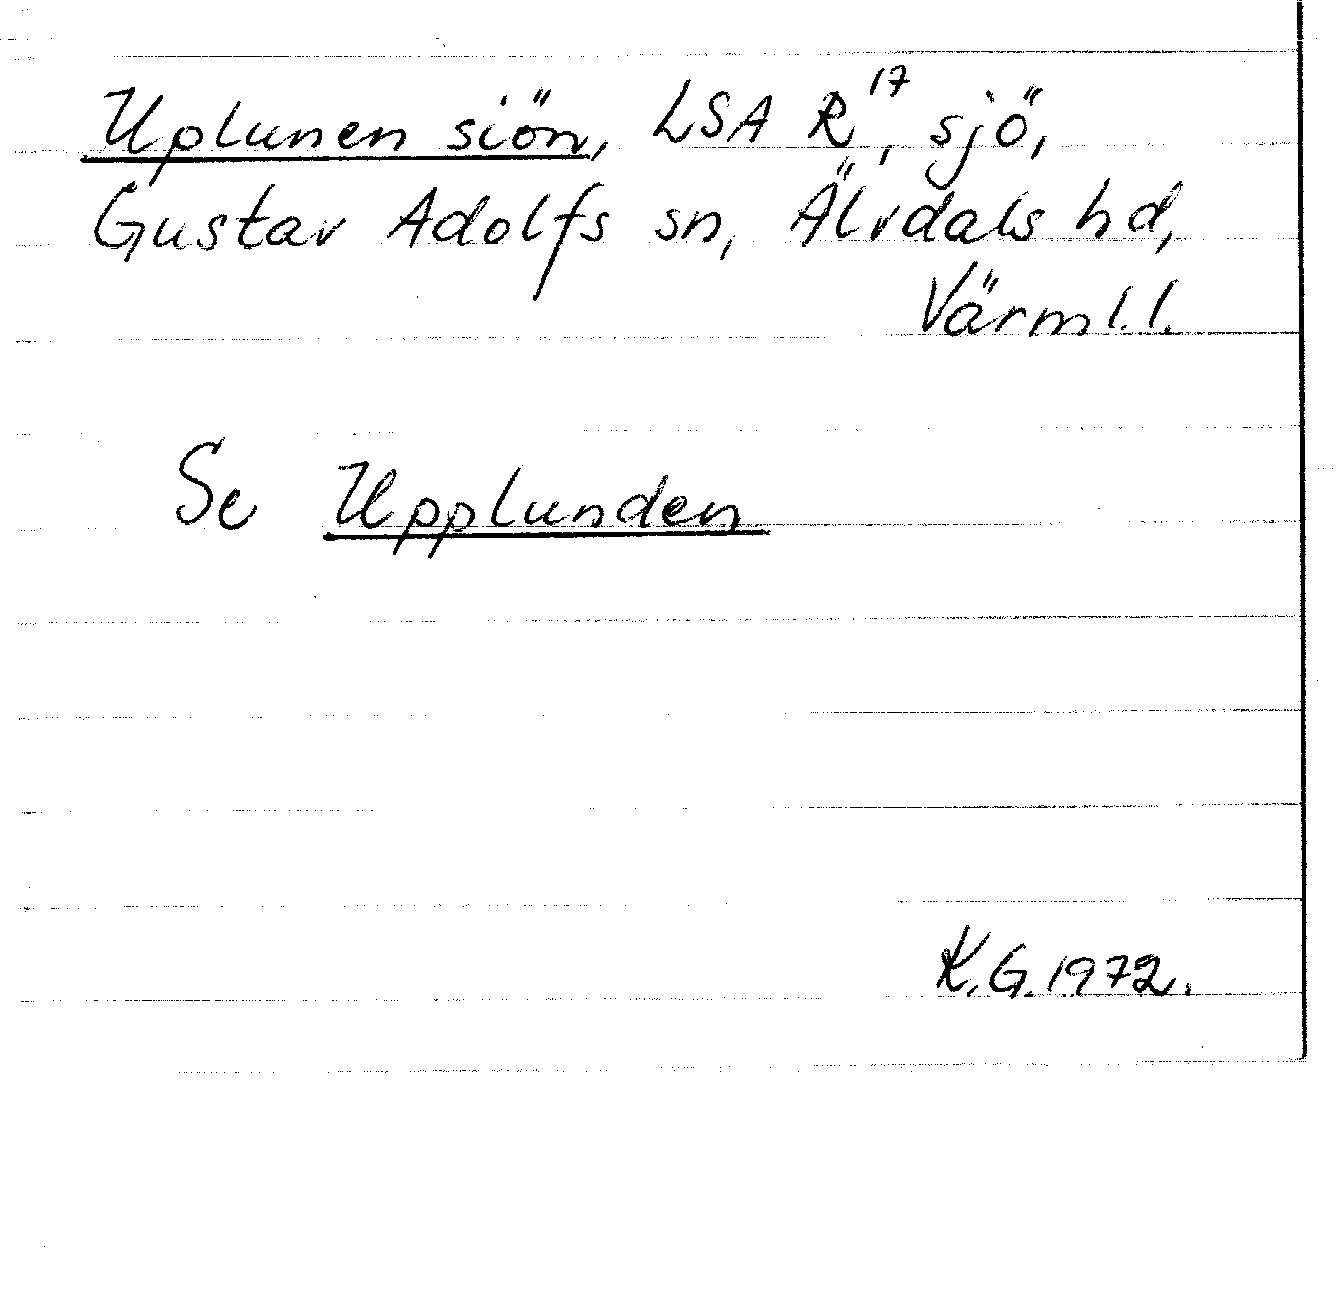 Uplunen siön, LSA R¹⁷, sjö,
Gustav Adolfs sn, Älvdals hd,
Värml. l.
Se Upplunden
K.G. 1972.